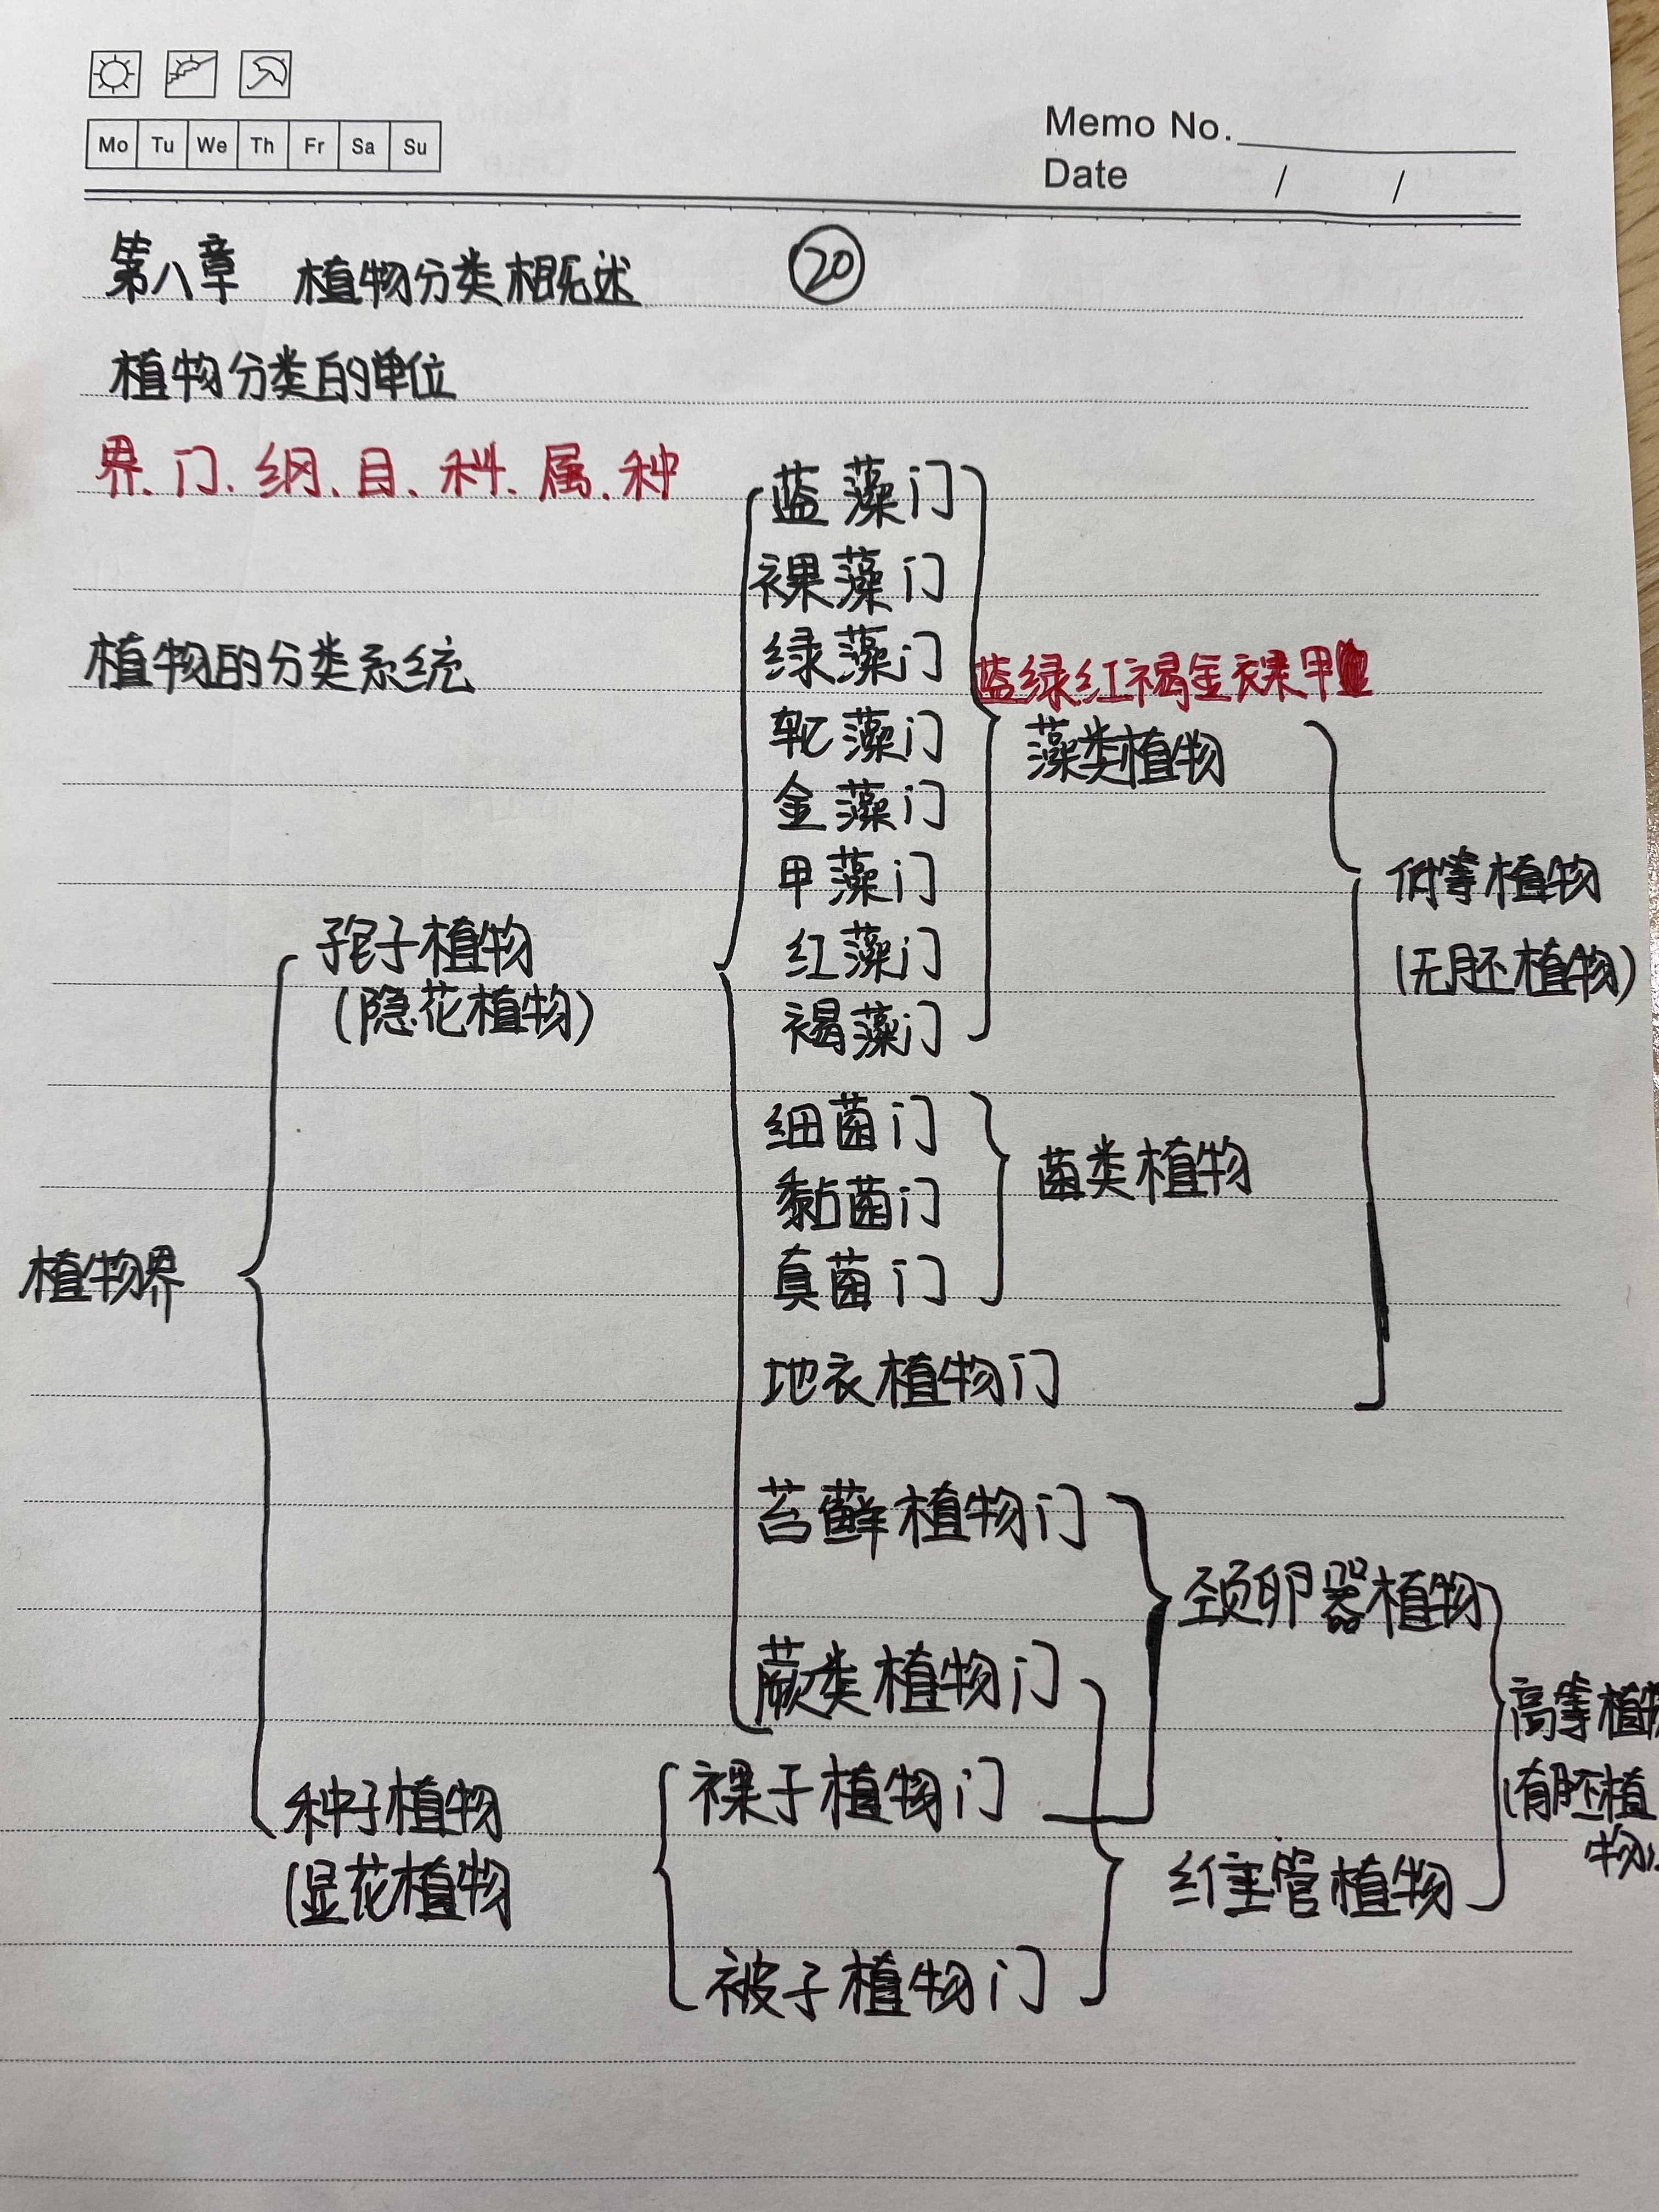 Mo Tu We Th Fr Sa Su
Memo No.
Date / /
第八章 植物分类概述 ⑳
植物分类的单位
界、门、纲、目、科、属、种
植物的分类系统
蓝藻门
裸藻门
绿藻门
蓝绿红褐金裸甲
轮藻门
藻类植物
金藻门
甲藻门
低等植物
(无胚植物)
红藻门
褐藻门
孢子植物
(隐花植物)
细菌门
黏菌门
菌类植物
真菌门
植物界
地衣植物门
苔藓植物门
颈卵器植物
蕨类植物门
高等植物
(有胚植
物)
种子植物
(显花植物
裸子植物门
维管植物
被子植物门